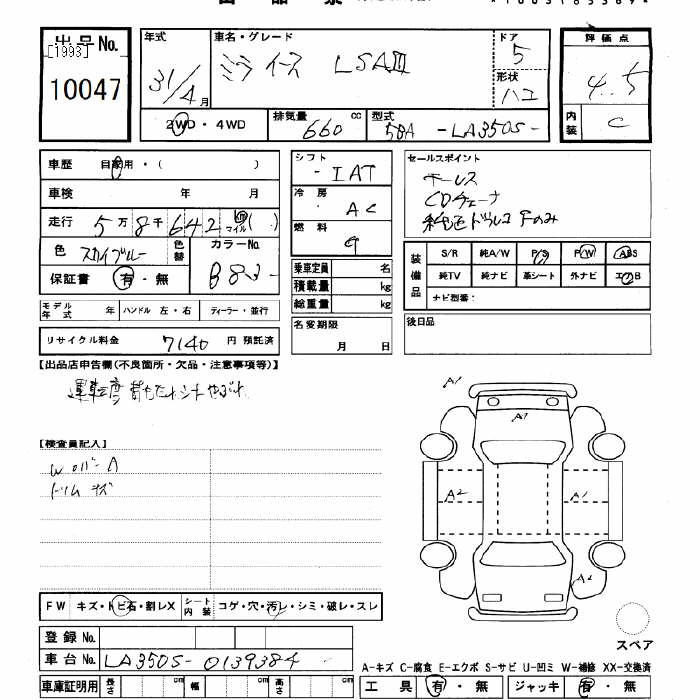 出品No.
[1993]
10047
年式
31/4月
車名・グレード
ミラ イース LSAⅢ
ドア
5
形状
ハコ
評価点
4.5
内装
C
2WD・4WD
排気量 660 cc
型式 5BA -LA350S-
車歴 自家用・( )
車検 年 月
走行 5万8千642 マイル( )
色 スカイブルー
色替
カラーNo.
B83-
保証書 有・無
シフト
IAT
冷房
AC
燃料
G
セールスポイント
キーレス
CDチューナ
乗車定員 名
積載量 kg
総重量 kg
装備品
S/R 純A/W P/S P/W ABS
純TV 純ナビ 革シート 外ナビ エアB
ナビ型番:
モデル年式 年 ハンドル 左・右 ディーラー・並行
リサイクル料金 7140 円 預託済
名変期限
月 日
後日品
【出品店申告欄(不良箇所・欠品・注意事項等)】
【検査員記入】
A1
A1
A2
A1
A2
W ロバー A
トリム キズ
FW キズ・トビ石・割レX
シート内装 コゲ・穴・汚レ・シミ・破レ・スレ
登録No.
車台No. LA350S-0139384
車庫証明用 長さ cm 幅 cm 高さ cm
スペア
A-キズ C-腐食 E-エクボ S-サビ U-凹ミ W-補修 XX-交換済
工具 有・無 ジャッキ 有・無